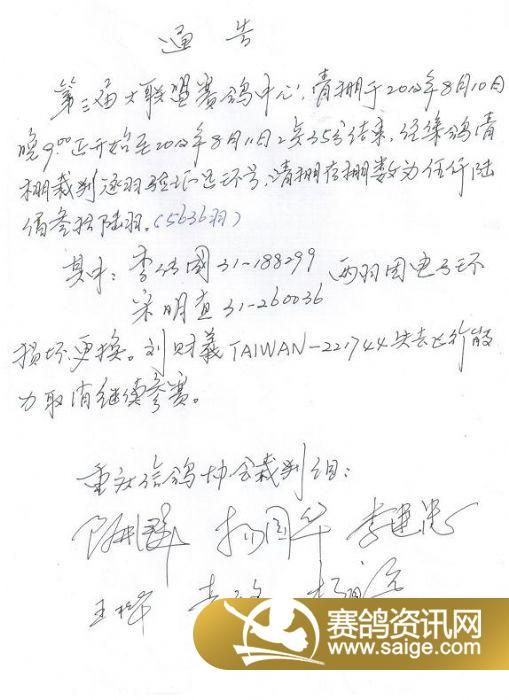 通告
第三届大联盟赛鸽中心,清棚于2012年8月10日
晚9:00正开始至2012年8月11日2点35分结束,经集鸽清
棚裁判逐羽验证足环号,清棚存棚数为伍仟陆
佰叁拾陆羽。(5636羽)
其中:李传国31-188299 两羽因电子环
宋明直31-260036
损坏更换。刘财义TAIWAN-221744失去飞行能
力取消继续参赛。
重庆信鸽协会裁判组:
杨国华 李建忠
赛鸽资讯网
www.saige.com